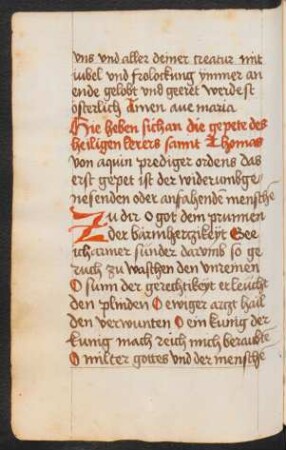 vns vnd aller deiner creatur mit
iubel vnd frolockung ymmer an
ende gelobt vnd geeret werdest
osterlich Amen aue maria
Hie heben sich an die gepete des
heiligen lerers sannt Thomas
von aquin prediger ordens das
erst gepet ist der widerumbge
nesenden oder anfahende mensche
Zu dir o got dem prunnen
der barmherczikeyt Gee
ich armer sunder darvmb so ge
ruch zu waschen den vnreinen
O sunn der gerechtikeyt erleucht
den plinden O ewiger arczt hail
den verwunten O ein kunig der
kunig mach reich mich beraubte
O milter gottes vnd der mensche